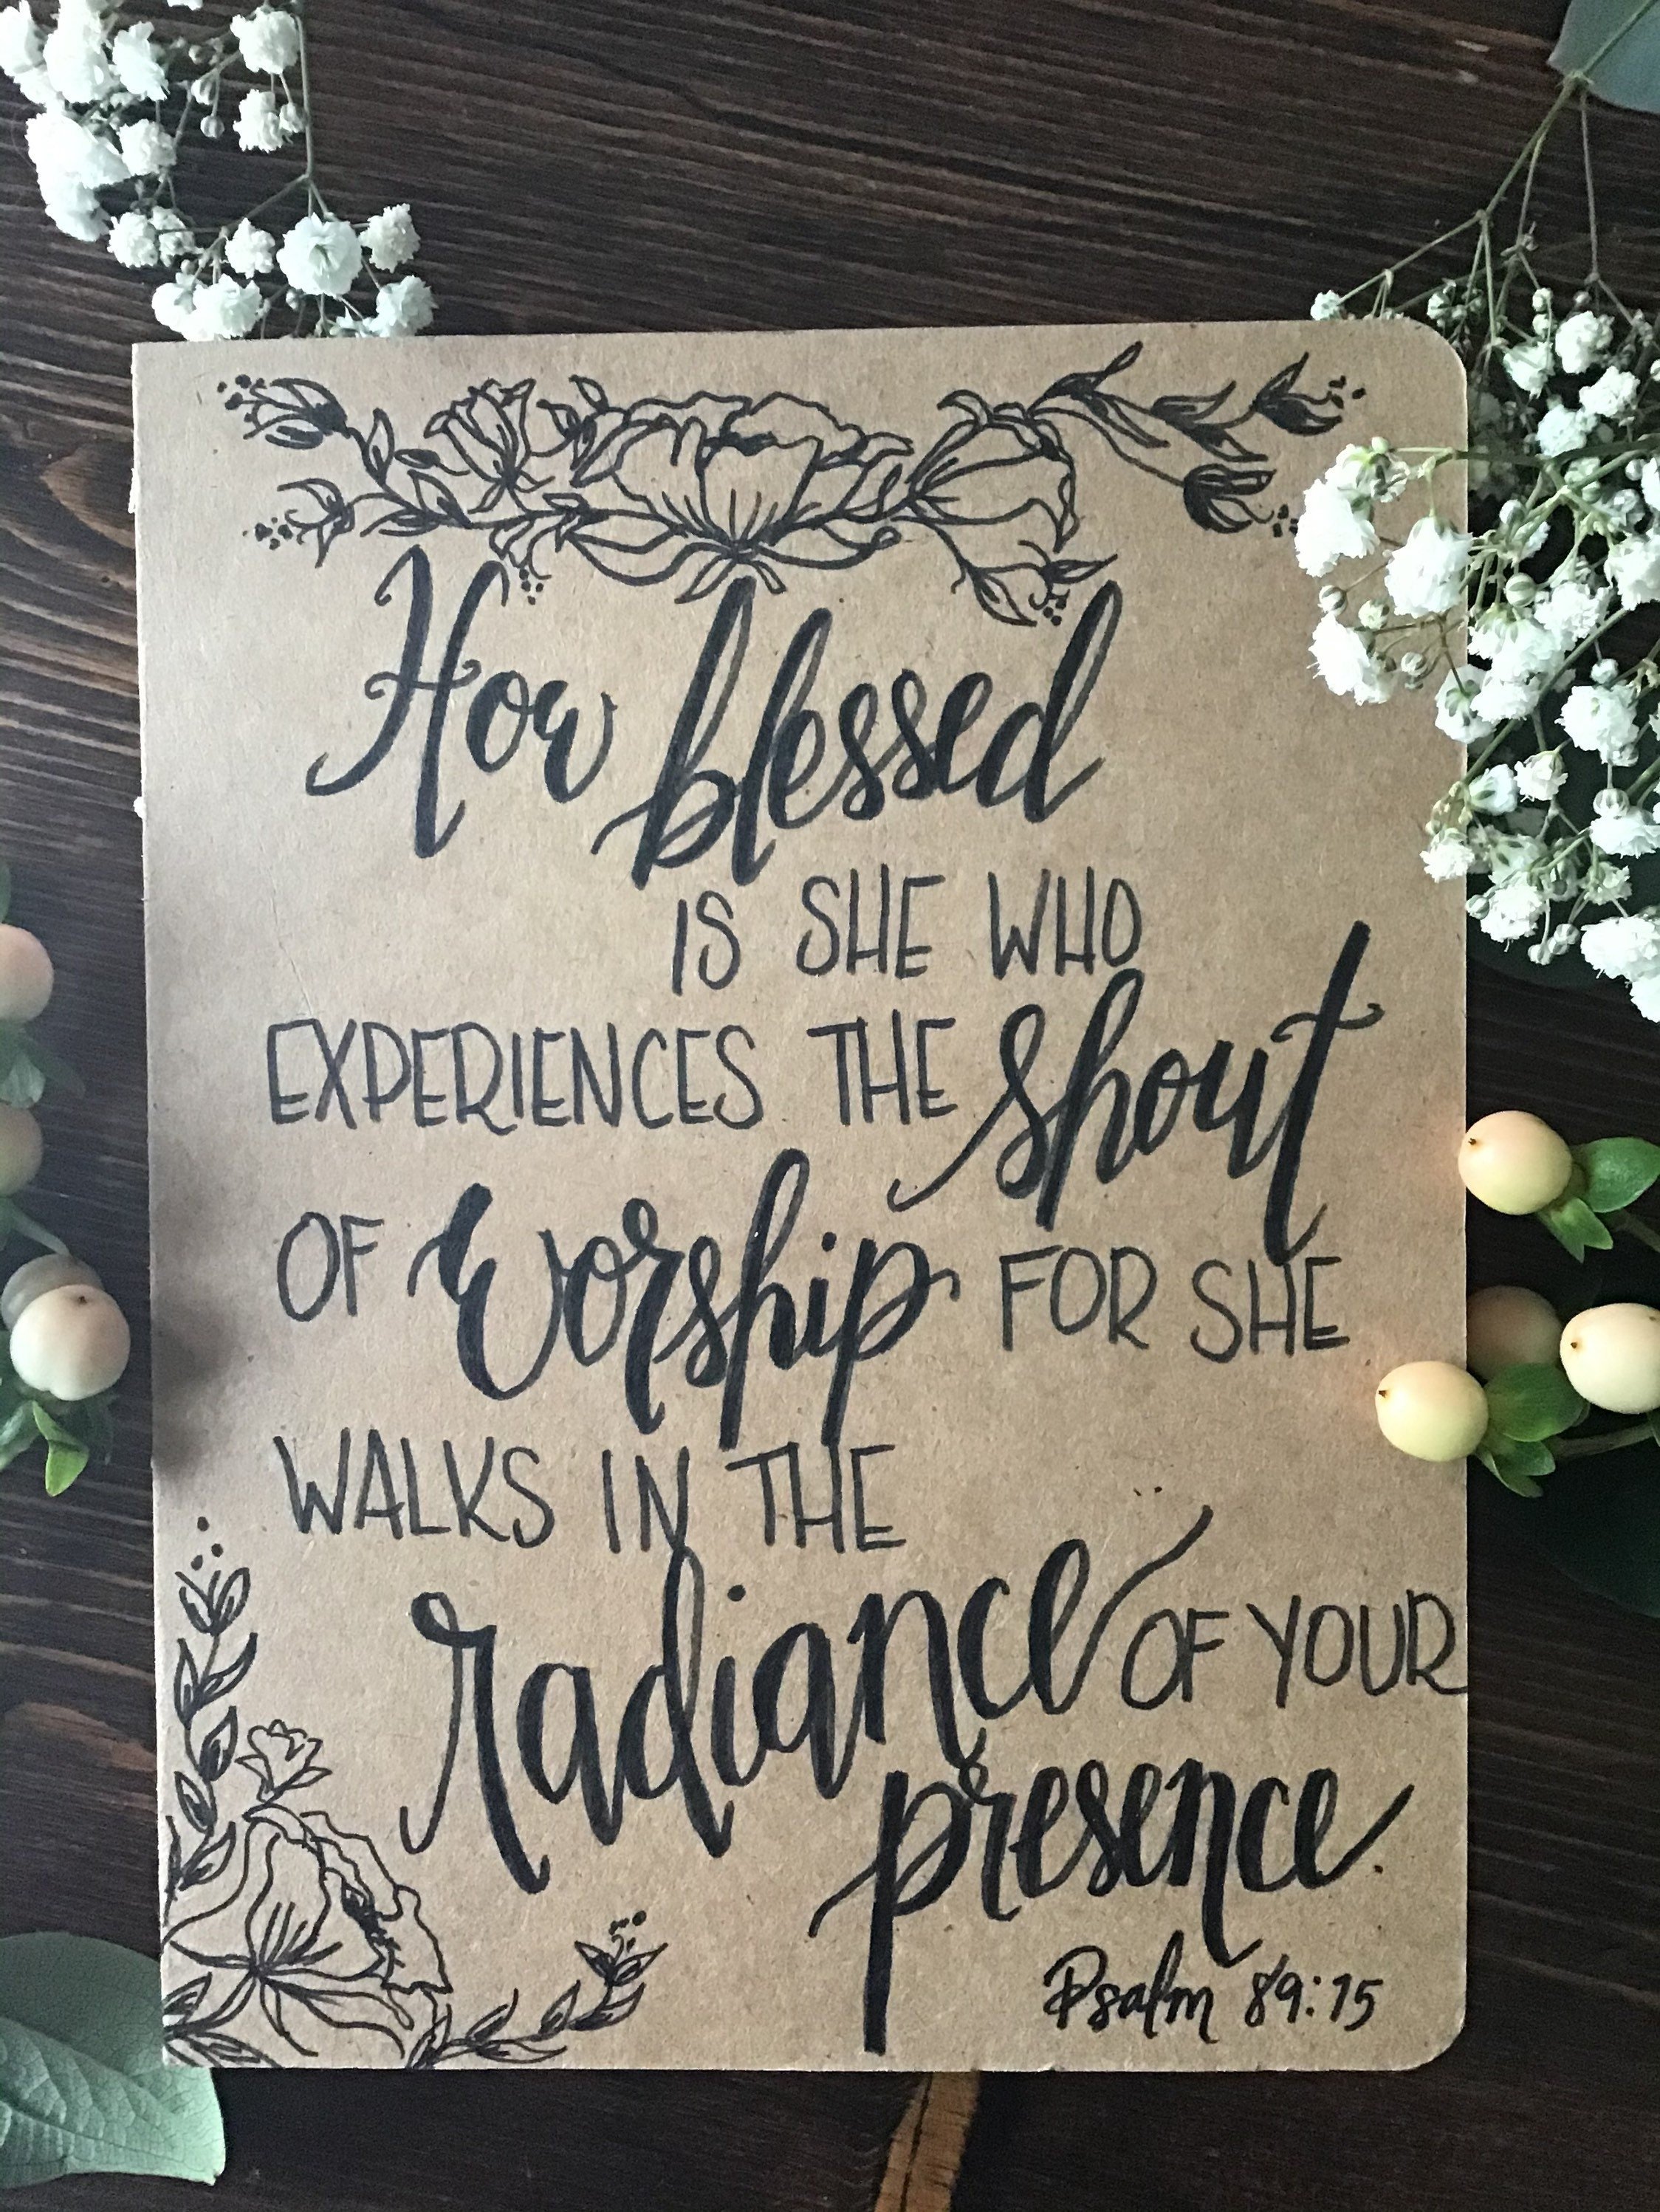 How blessed
IS SHE WHO
EXPERIENCES THE shout
OF Worship FOR SHE
WALKS IN THE
radiance OF YOUR
presence.
Psalm 89:15